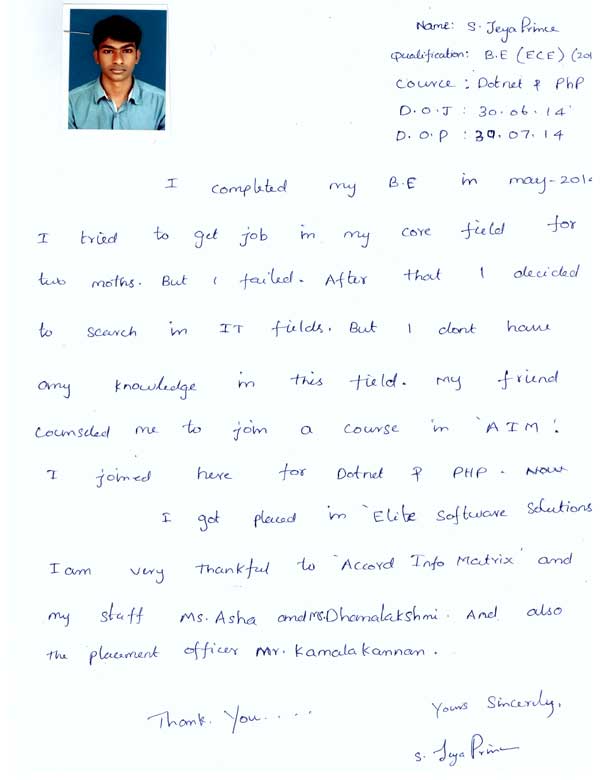 Name: S. Jeya Prince
Qualification: B.E (ECE) (201
Cource : Dotnet & PhP
D.O.J : 30.06.14
D.O.P : 30.07.14
I completed my B.E in may-2014
I tried to get job in my core field for
two moths. But I failed. After that I decided
to search in IT fields. But I dont have
any knowledge in this field. My friend
counseled me to join a course in 'AIM'.
I joined here for Dotnet & PHP. Now
I got placed in 'Elite Software Solutions
I am very thankful to 'Accord Info Matrix' and
my staff Ms. Asha and Ms. Dhanalakshmi. And also
the placement officer Mr. Kamalakannan.
Thank You.....
Yours Sincerely,
S. Jeya Prince